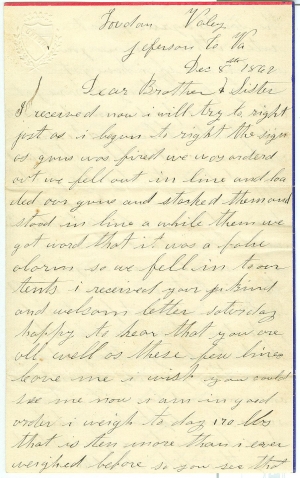 Loudon Valey
Jeferson Co Va
Dec 8th 1862
Dear Brother & Sister
I received now i will try to right
just as i began to right the sign
as guns was fired we was orderd
out we fell out in line and loa
ded our guns and stacked them and
stood in line a while them we
got word that it was a false
alarm so we fell in to our
tents i received your kind
and welcom letter saturday
happy to hear that you are
all well as these few lines
leave me i wish you could
see me now i am in good
order i weigh to day 170 lbs
that is ten more than i ever
weighed before so you see that